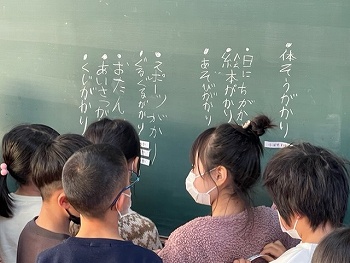 体そうがかり
日にちがかり
絵本がかり
あそびがかり
スポーツがかり
おたん
あいさつが
くじがかり